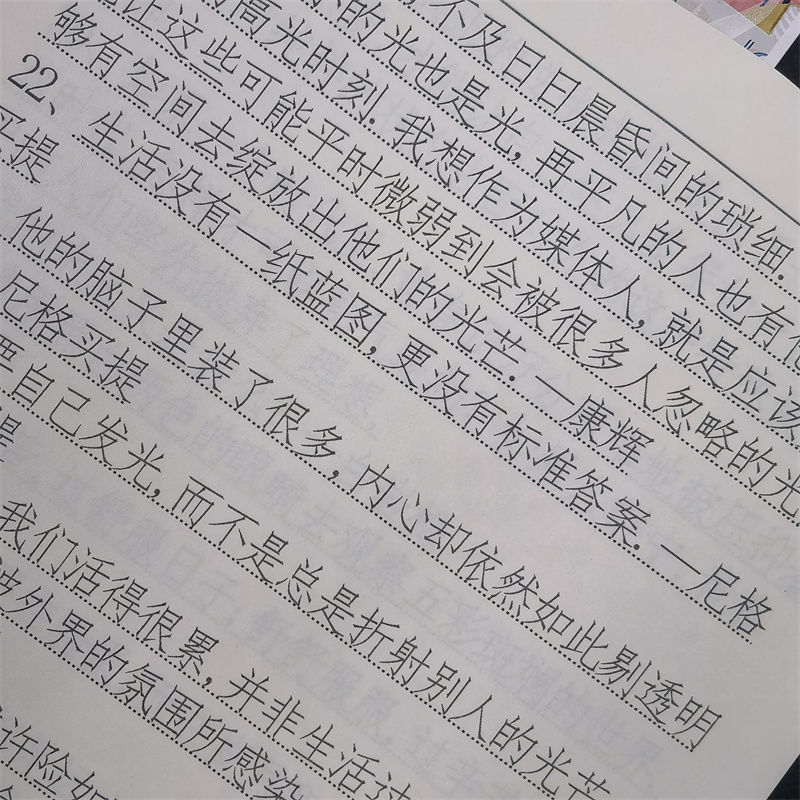 不及日日晨昏间的琐细.
的光也是光,再平凡的人也有他
高光时刻.我想作为媒体人,就是应该
让这些可能平时微弱到会被很多人忽略的光
够有空间去绽放出他们的光芒.—康辉
22、生活没有一纸蓝图,更没有标准答案.—尼格
买提
他的脑子里装了很多,内心却依然如此剔透明
尼格买提
要自己发光,而不是总是折射别人的光芒
提
我们活得很累,并非生活过
被外界的氛围所感染
许险如